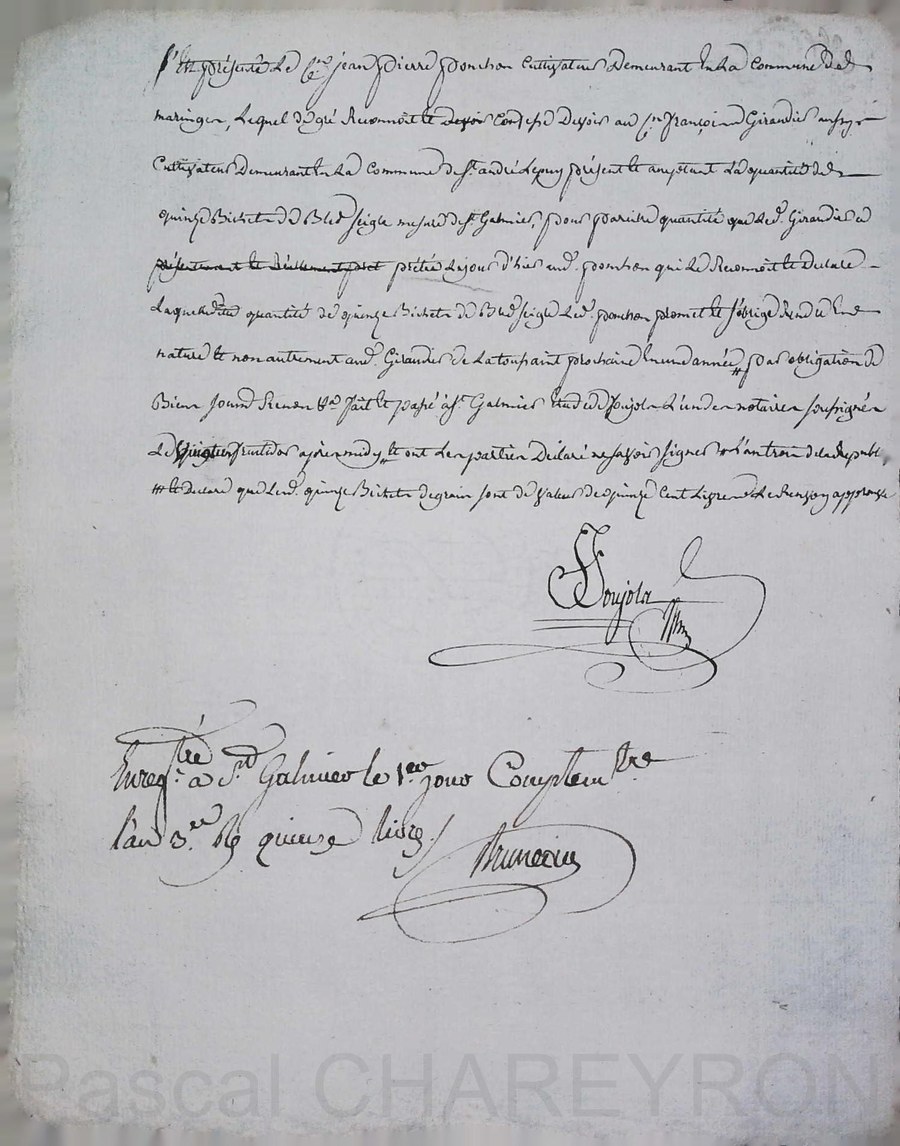 S'Est présenté Le C.en jean pierre ponchon Cultivateur Demeurant En La Commune De
maringes, Lequel de gré Reconnoit et Confesse Devoir au C.en françois Girardier aussy
Cultivateur Demeurant En La Commune de St. andré Lepuy présent et acceptant La quantité de
quinze Bichets De Bled seigle mesure de St. Galmier, pour pareille quantité que Led. Girardier a
présentement et réellement pret prétée Le jour d'hier aud. ponchon qui Le Reconnoit et Declare
Laquelle quantité de quinze Bichets De Bled seigle Led. ponchon promet et s'oblige Rendre En
nature et non autrement aud. Girardier de La toussaint prochaine En une année, par obligation de
Biens Soum. Renon. &a. fait et passé à St. Galmier Etude de Poujola L'un des notaires soussignés
Le fructidor après midy et ont Les parties Déclaré ne savoir signer L'an trois de la Republ.
et Declaré que Lesd. quinze Bichets de grain sont de valeur de quinze Cent Livres Le Renvoy approuvé
Poujola
Enreg.tré à St. Galmier le 1.er jour Complem.tre
l'an 3.e Rs quinze livres